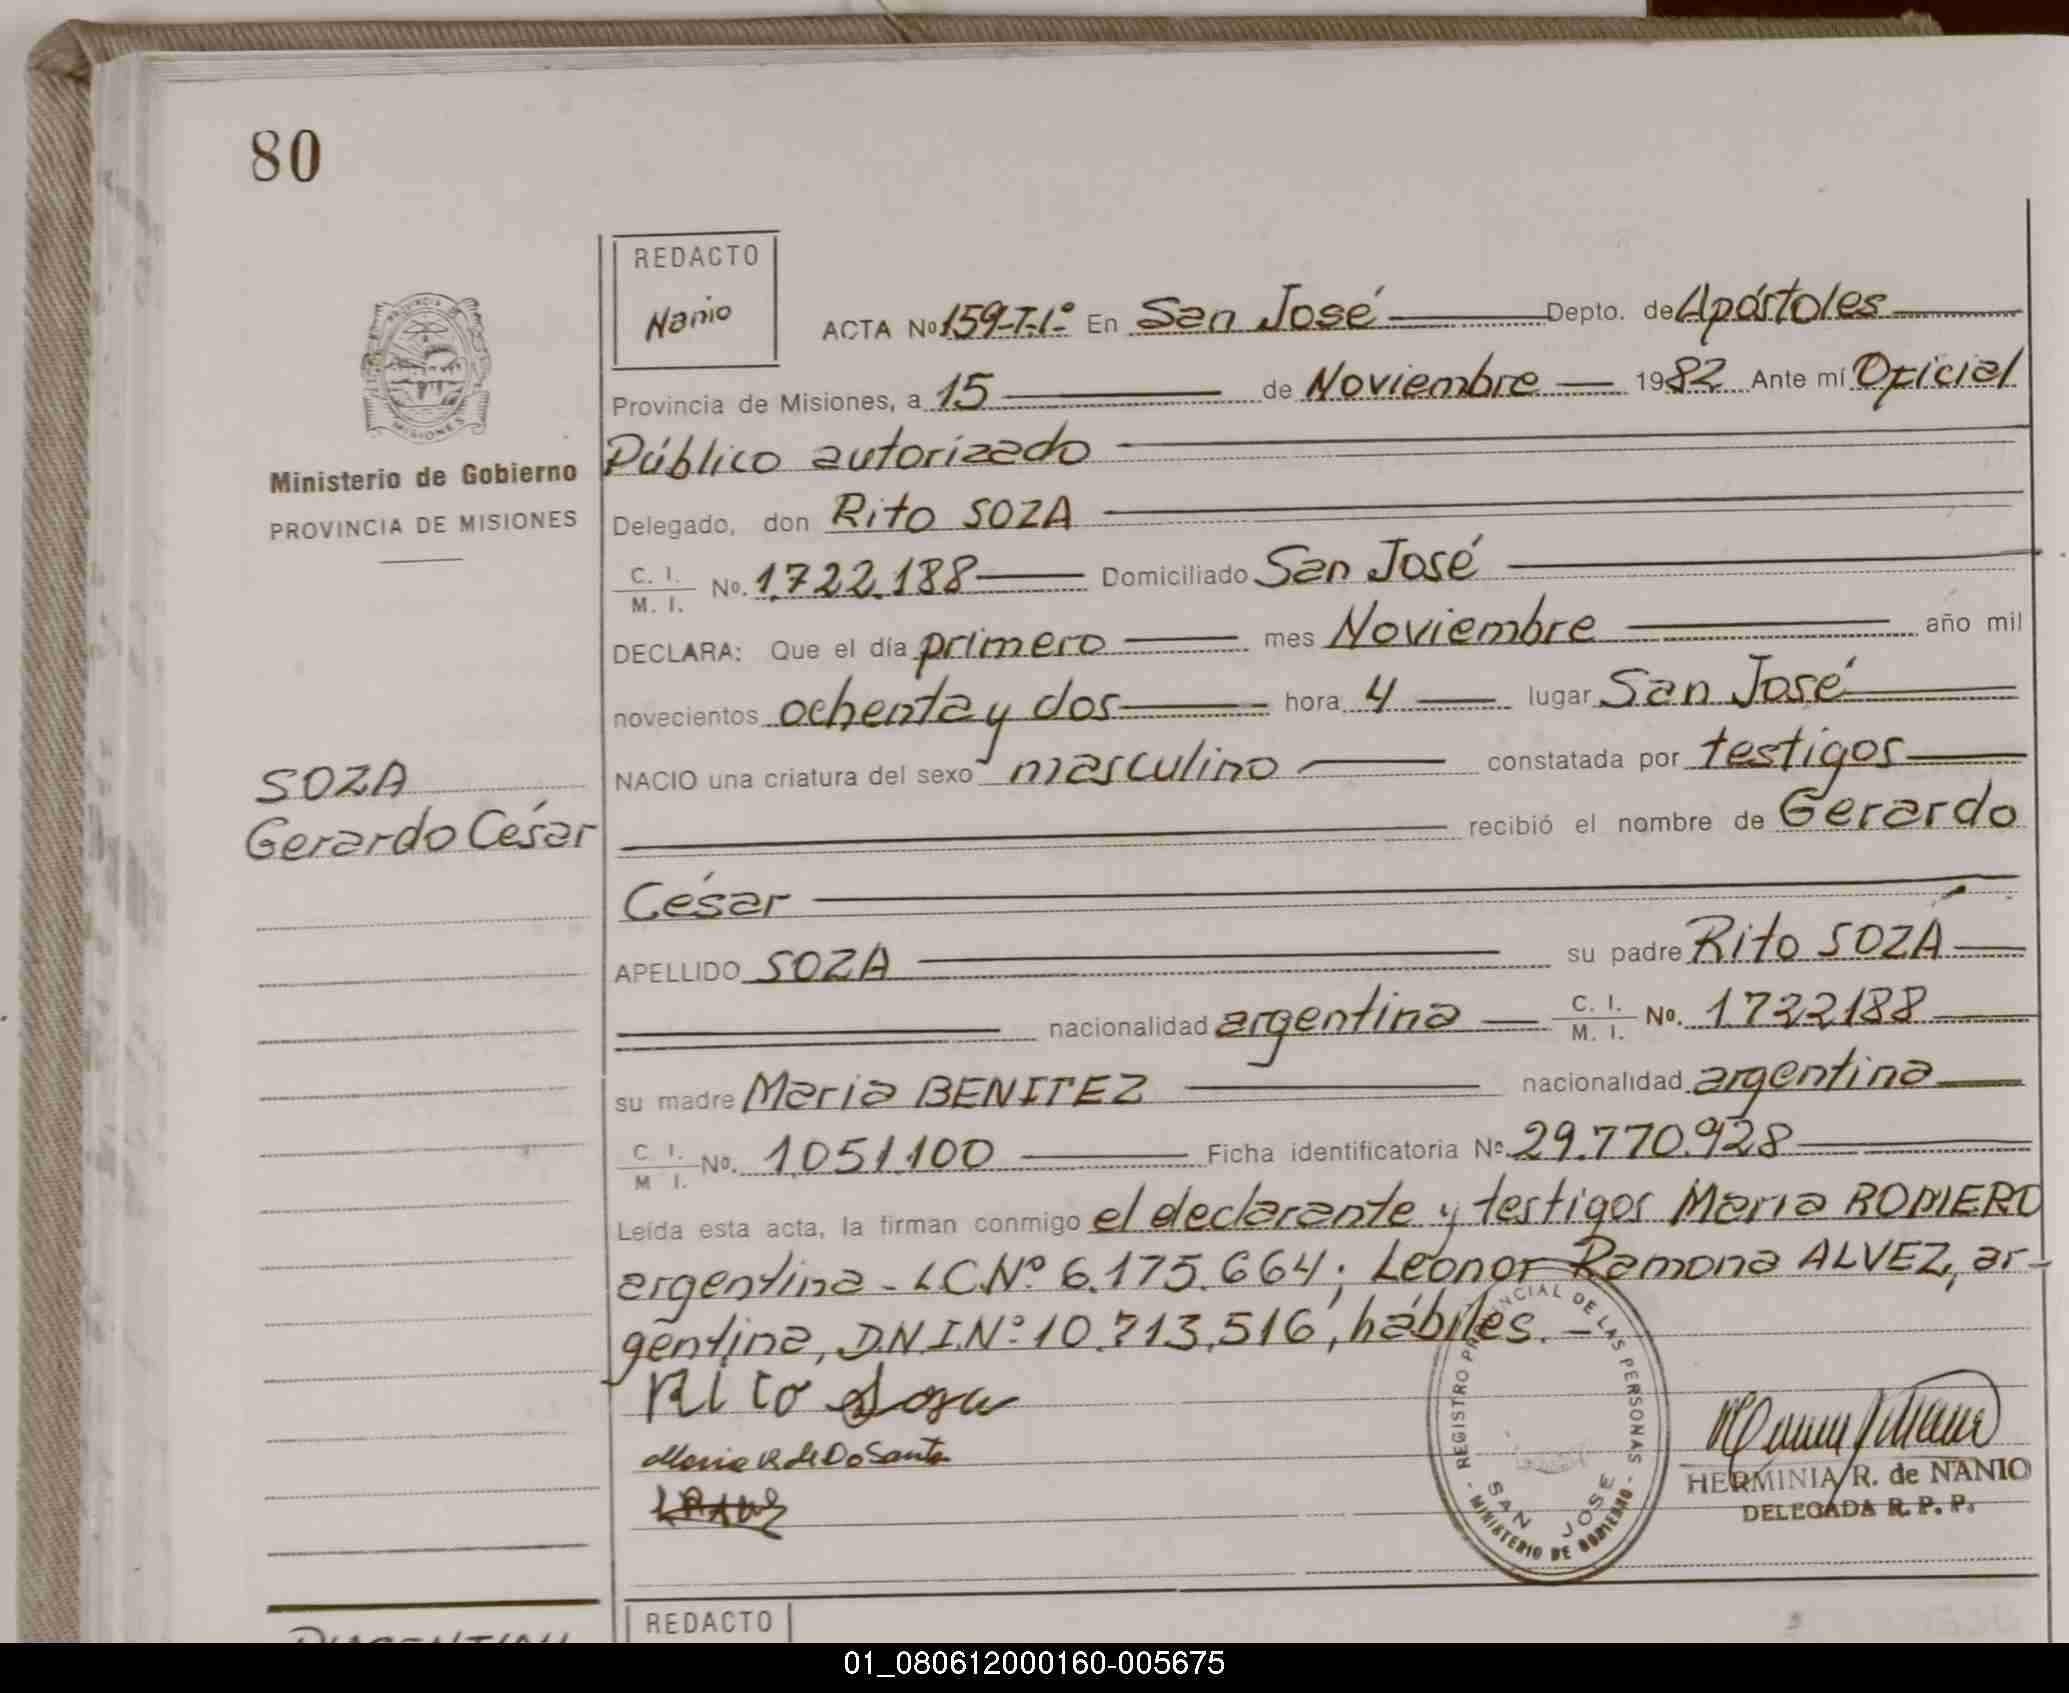 80
REDACTO
Nanio
ACTA Nº 159-T.1º En San José Depto. de Apóstoles
Provincia de Misiones, a 15 de Noviembre 1982 Ante mí Oficial
Público autorizado
Delegado, don Rito SOZA
C. I.
M. I.
No. 1.722.188 Domiciliado San José
DECLARA: Que el día primero mes Noviembre año mil
novecientos ochenta y dos hora 4 lugar San José
NACIO una criatura del sexo masculino constatada por testigos
recibió el nombre de Gerardo
César
APELLIDO SOZA su padre Rito SOZA
nacionalidad argentina C. I.
M. I. No. 1722188
su madre Maria BENITEZ nacionalidad argentina
C. I.
M. I.
No. 1.051.100 Ficha identificatoria Nº 29.770.928
Leída esta acta, la firman conmigo el declarante y testigos Maria ROMERO
argentina - LC.Nº 6.175.664; Leonor Ramona ALVEZ, ar-
gentina, D.N.I.Nº 10.713.516, hábiles. -
Rito Soza
Maria R de Do Santo
PROVINCIA DE
MISIONES
Ministerio de Gobierno
PROVINCIA DE MISIONES
SOZA
Gerardo César
- REGISTRO PROVINCIAL DE LAS PERSONAS -
SAN JOSE
MINISTERIO DE GOBIERNO
HERMINIA R. de NANIO
DELEGADA R. P. P.
REDACTO
01_080612000160-005675